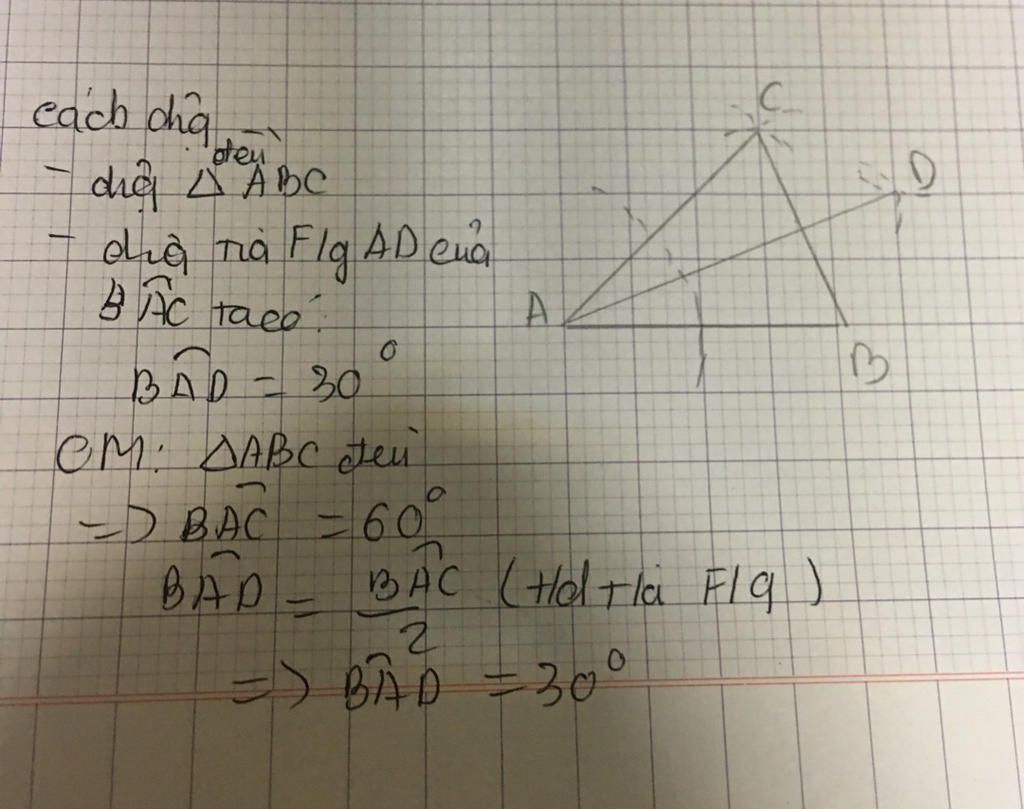 cách dựng
- dựng △ đều ABC
- dựng tia F/g AD của
BAC ta có:
BAD = 30°
CM: △ABC đều
=> BAC = 60°
BAD = BAC/2 (t/d tia F/g)
=> BAD = 30°
C
D
A
B